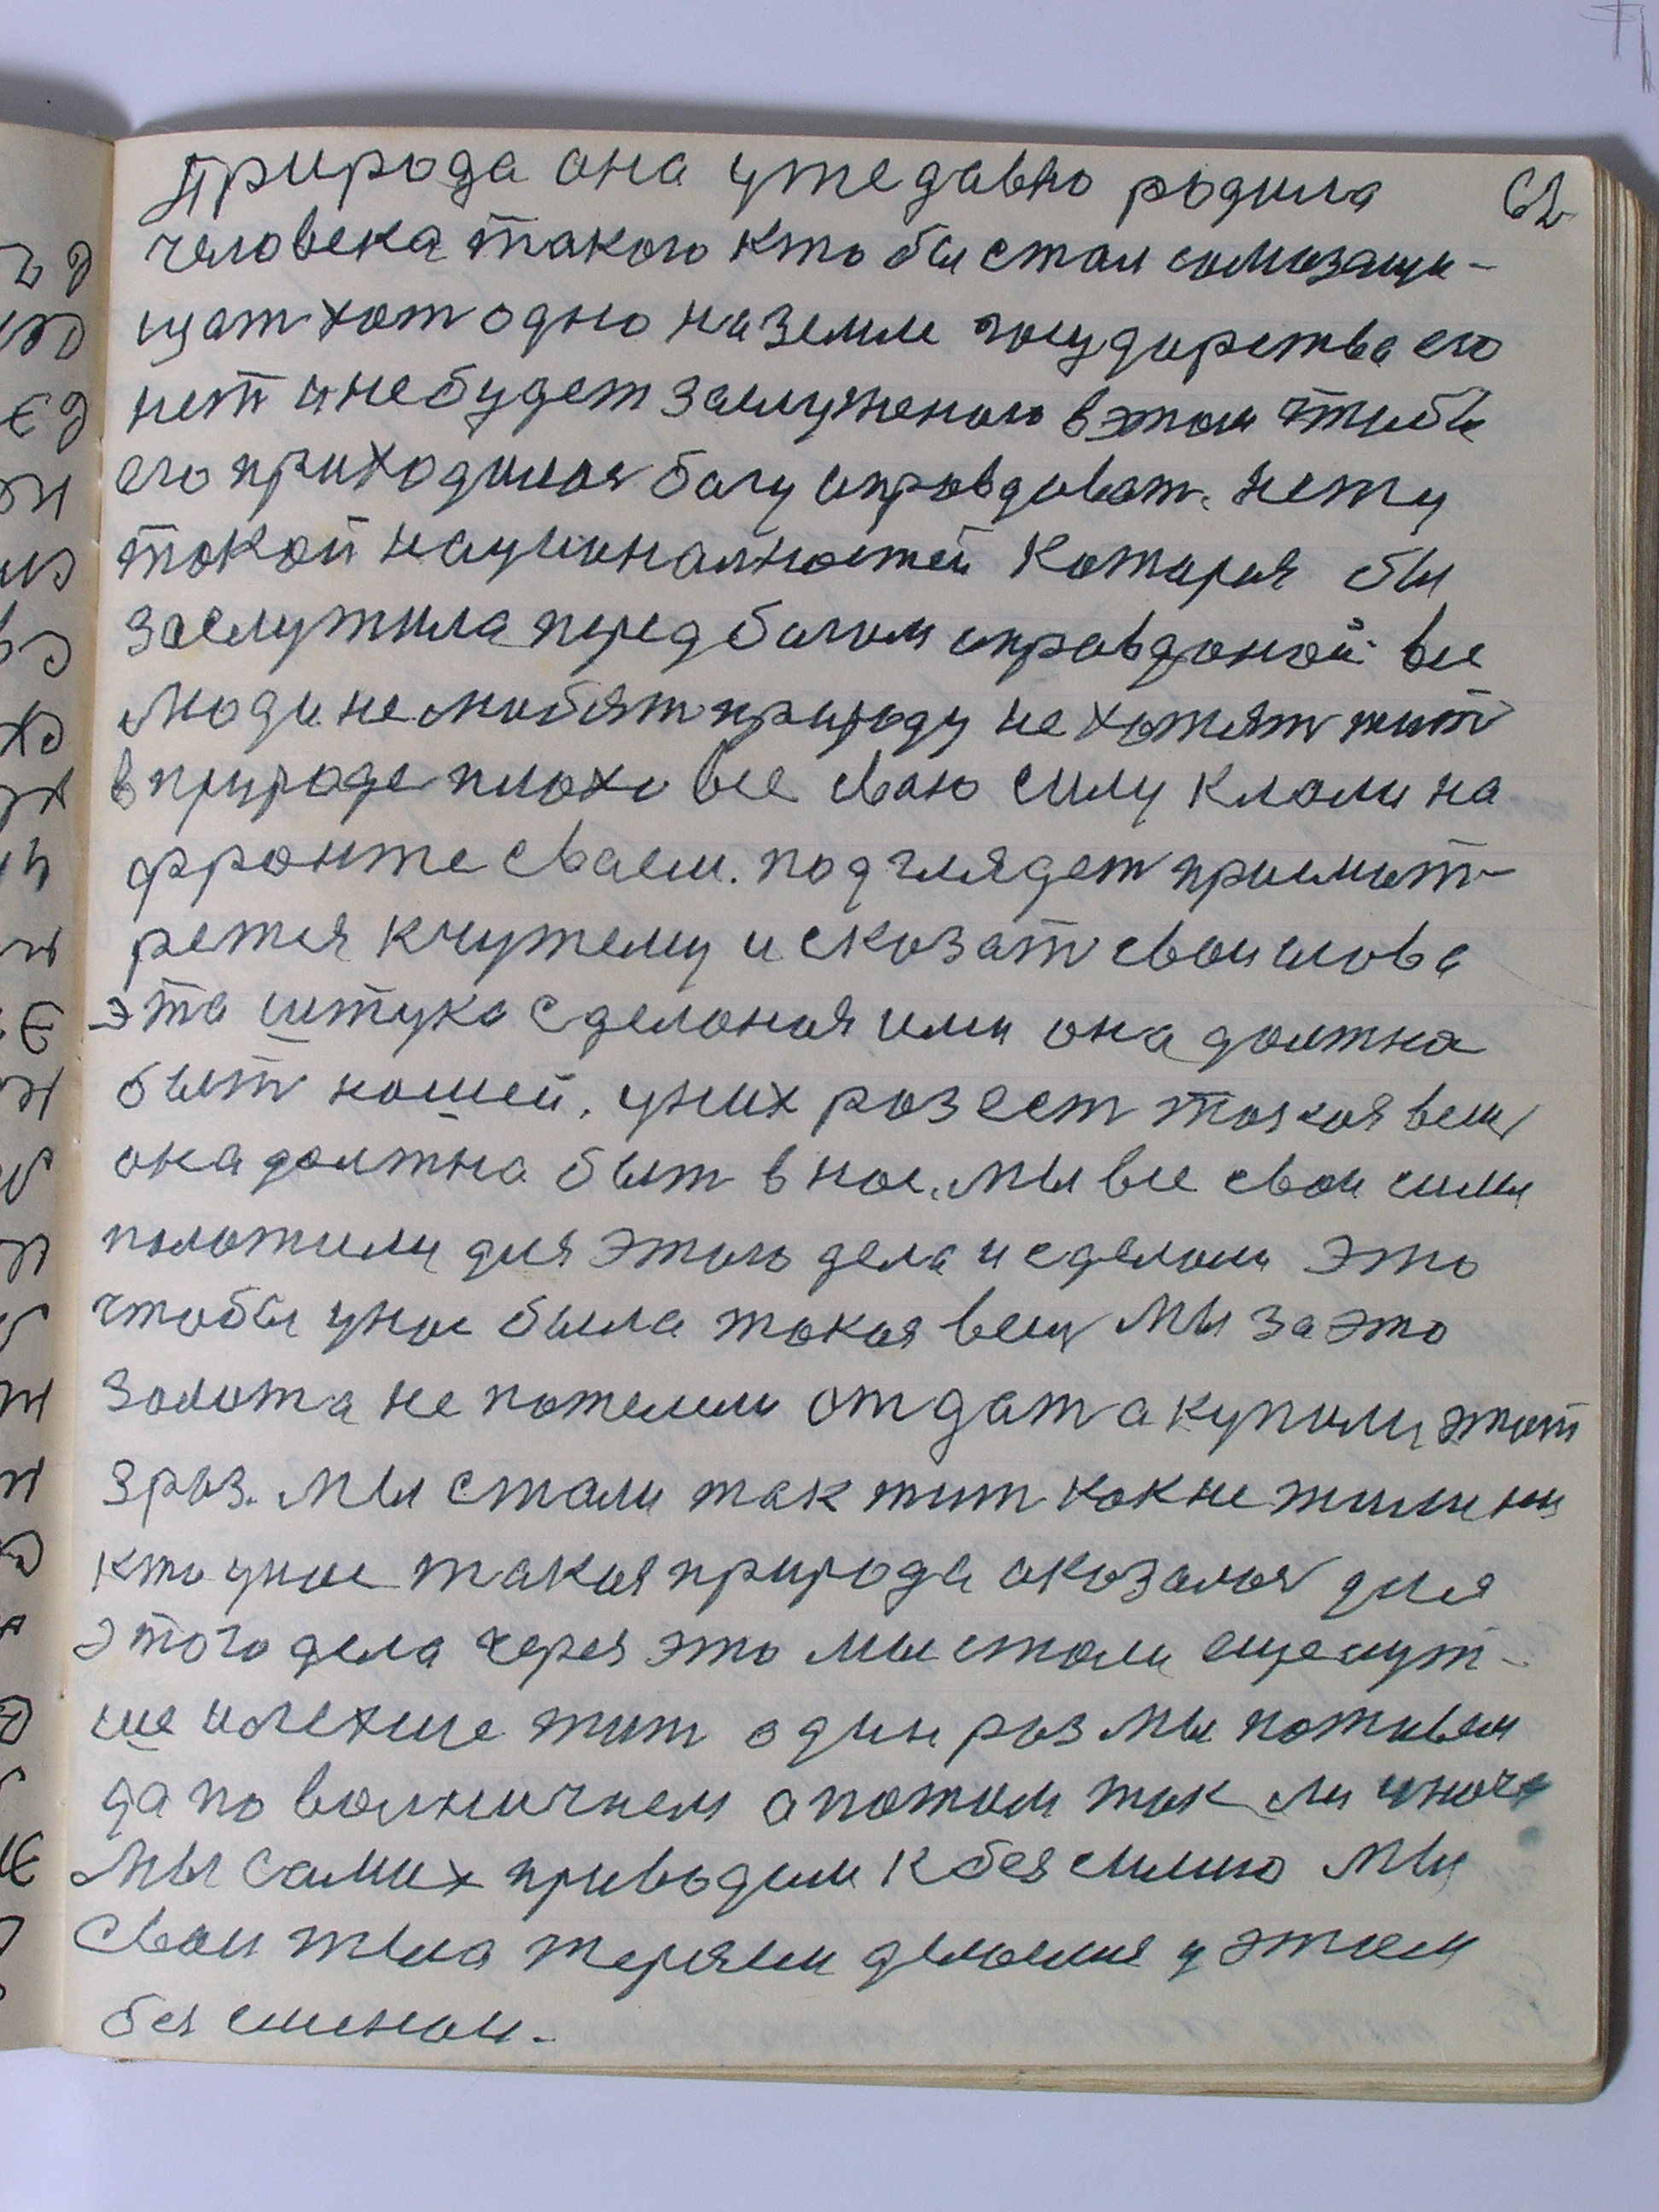 природа она уже давно родила 62
человека такого кто бы стал самозащи-
щат хот одно на земле государства его
нет и небудет заслуженого в этом чтобы
его приходилося богу оправдоват. нету
токой националностей которыя бы
заслужила перед богом оправданой все
люди не любят природу не хотят жит
в природе плохо все сваю силу клали на
фронте сваем. подглядет присмот-
ретея к чужему и сказат свои слова
эта штука сделоная ими она должна
быт нашей. у них роз ест такая вещ
она должна быт в нас. мы все свои силы
положили для этого дела и сделоли это
чтобы унас была такая вещ мы за это
золота не пожелели отдат а купили этот
зраз. мы стали так жит как не жили ни
кто унас такая природа оказалоя для
этого дела через это мы стали еще лут-
ше и легкше жит один раз мы поживем
да по волничием а потом так ли иначе
мы самих приводим к без силию мы
свои тела теряем делоемся у этом
без силном.